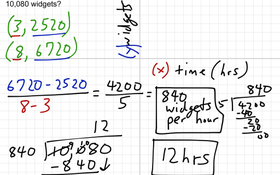 10,080 widgets?
(3, 2520)
(8, 6720)
(y) widgets
(x) time (hrs)
6720 - 2520 / 8 - 3 = 4200 / 5 = 840 widgets per hour
840
5 4200
-40
20
-20
00
12
840 10080
-840↓
12 hrs